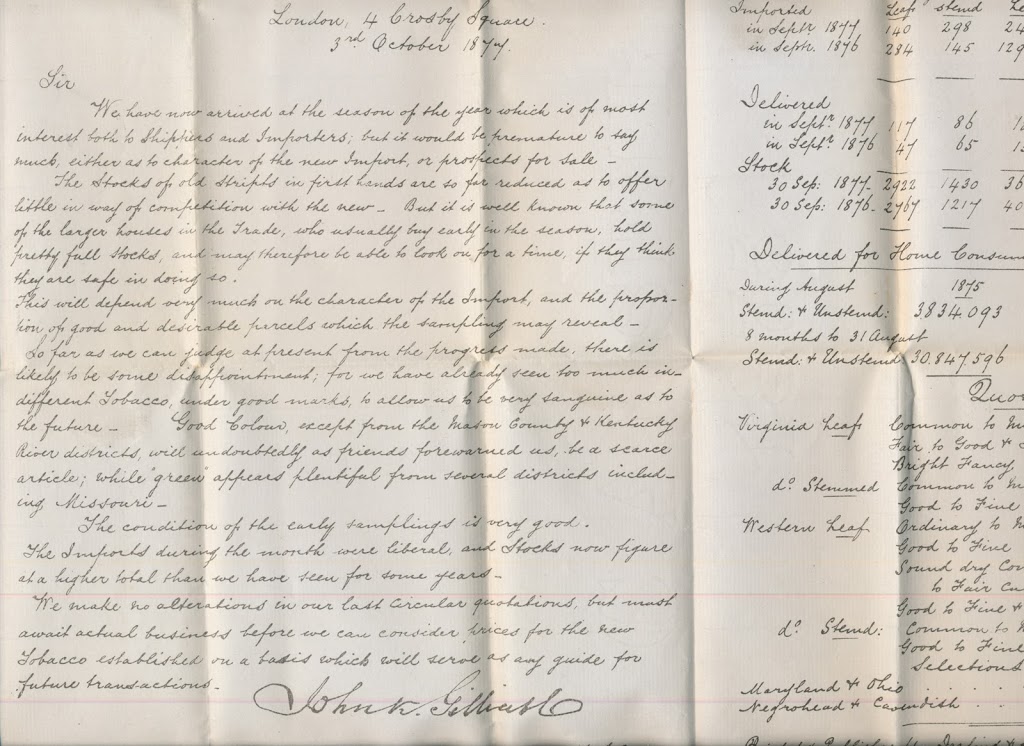 London, 4 Crosby Square.
3rd October 1877.
Sir
We have now arrived at the season of the year which is of most
interest both to Shippers and Importers; but it would be premature to say
much, either as to character of the new Import, or prospects for sale –
The Stocks of old Stripts in first hands are so far reduced as to offer
little in way of competition with the new – But it is well known that some
of the larger houses in the Trade, who usually buy early in the season, hold
pretty full Stocks, and may therefore be able to look on for a time, if they think
they are safe in doing so.
This will depend very much on the character of the Import, and the propor-
tion of good and desirable parcels which the sampling may reveal –
So far as we can judge at present from the progress made, there is
likely to be some disappointment; for we have already seen too much in-
different Tobacco, under good marks, to allow us to be very sanguine as to
the future – Good Colour, except from the Mason County & Kentucky
River districts, will undoubtedly as friends forewarned us, be a scarce
article; while "green" appears plentiful from several districts includ-
ing Missouri –
The condition of the early samplings is very good.
The Imports during the month were liberal, and Stocks now figure
at a higher total than we have seen for some years –
We make no alterations in our last Circular quotations, but must
await actual business before we can consider prices for the new
Tobacco established on a basis which will serve as any guide for
future transactions –
John K. Gilliat & Co
Imported Leaf Stemd
in Septr 1877 140 298 24
in Septr. 1876 284 145 129
Delivered
in Septr. 1877 117 86
in Septr. 1876 47 65
Stock
30 Sep: 1877 – 2922 1430 36
30 Sep: 1876 – 2767 1217 40
Delivered for Home Consum
During August 1875
Stemd: & Unstemd: 3834093
8 months to 31 August
Stemd: & Unstemd 30847596
Quo
Virginia Leaf Common to M
Fair to Good &
Bright Fancy
do. Stemmed Common to M
Good to Fine
Western Leaf Ordinary to M
Good to Fine
Sound dry Com
to Fair Cu
Good to Fine &
do. Stemd: Common to M
Good to Fine
Selections
Maryland & Ohio . . . .
Negrohead & Cavendish . .